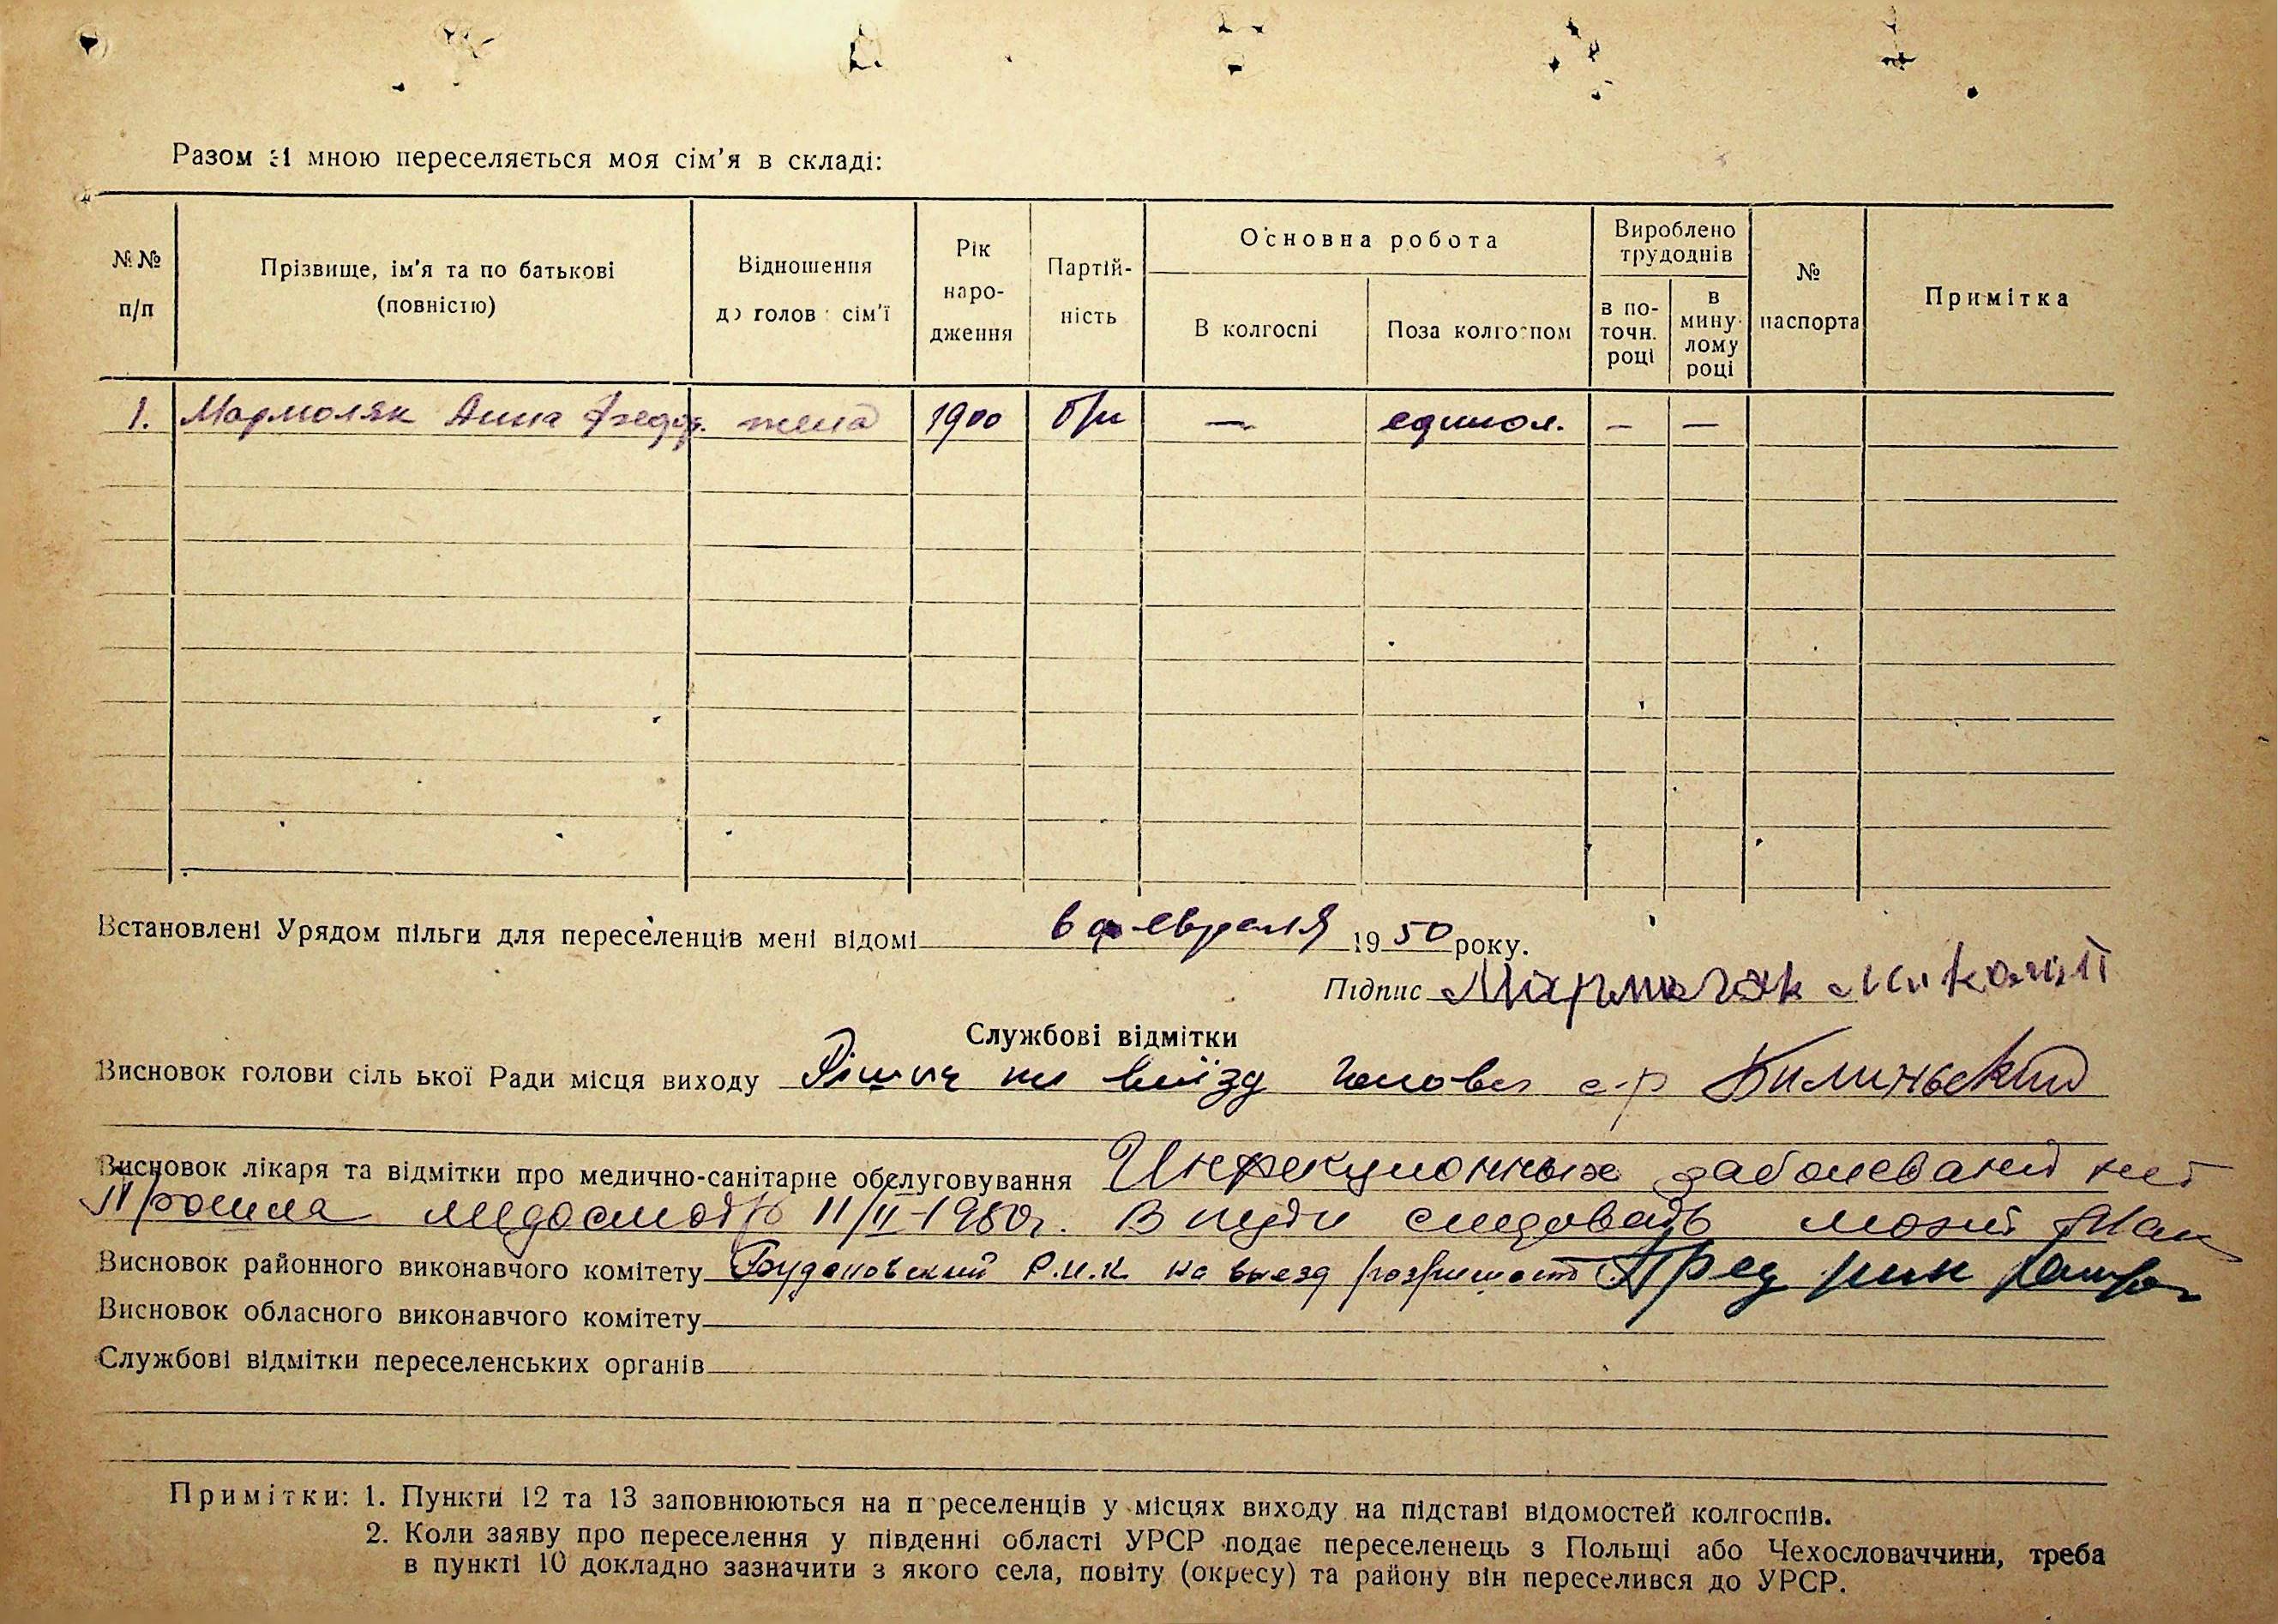 Разом зі мною переселяється моя сім'я в складі:
№№ п/п
Прізвище, ім'я та по батькові (повністю)
Відношення до голов сім'ї
Рік народження
Партійність
Основна робота
В колгоспі
Поза колгоспом
Вироблено трудоднів
в поточн. році
в минулому році
№ паспорта
Примітка
1. Мармоляк Анна Федор. жена 1900 б/п — единол. — —
Встановлені Урядом пільги для переселенців мені відомі 6 февраля 1950 року.
Підпис Мармоляк Миколай
Службові відмітки
Висновок голови сільської Ради місця виходу на виїзд голова с-р
Висновок лікаря та відмітки про медично-санітарне обслуговування Инфекционных заболеваний нет
Прошла медосмотр 11/II-1950г. В пути следовать может
Висновок районного виконавчого комітету Будановский Р.И.К. на выезд Пред рик
Висновок обласного виконавчого комітету
Службові відмітки переселенських органів
Примітки: 1. Пункти 12 та 13 заповнюються на переселенців у місцях виходу на підставі відомостей колгоспів.
2. Коли заяву про переселення у південні області УРСР подає переселенець з Польщі або Чехословаччини, треба
в пункті 10 докладно зазначити з якого села, повіту (окресу) та району він переселився до УРСР.